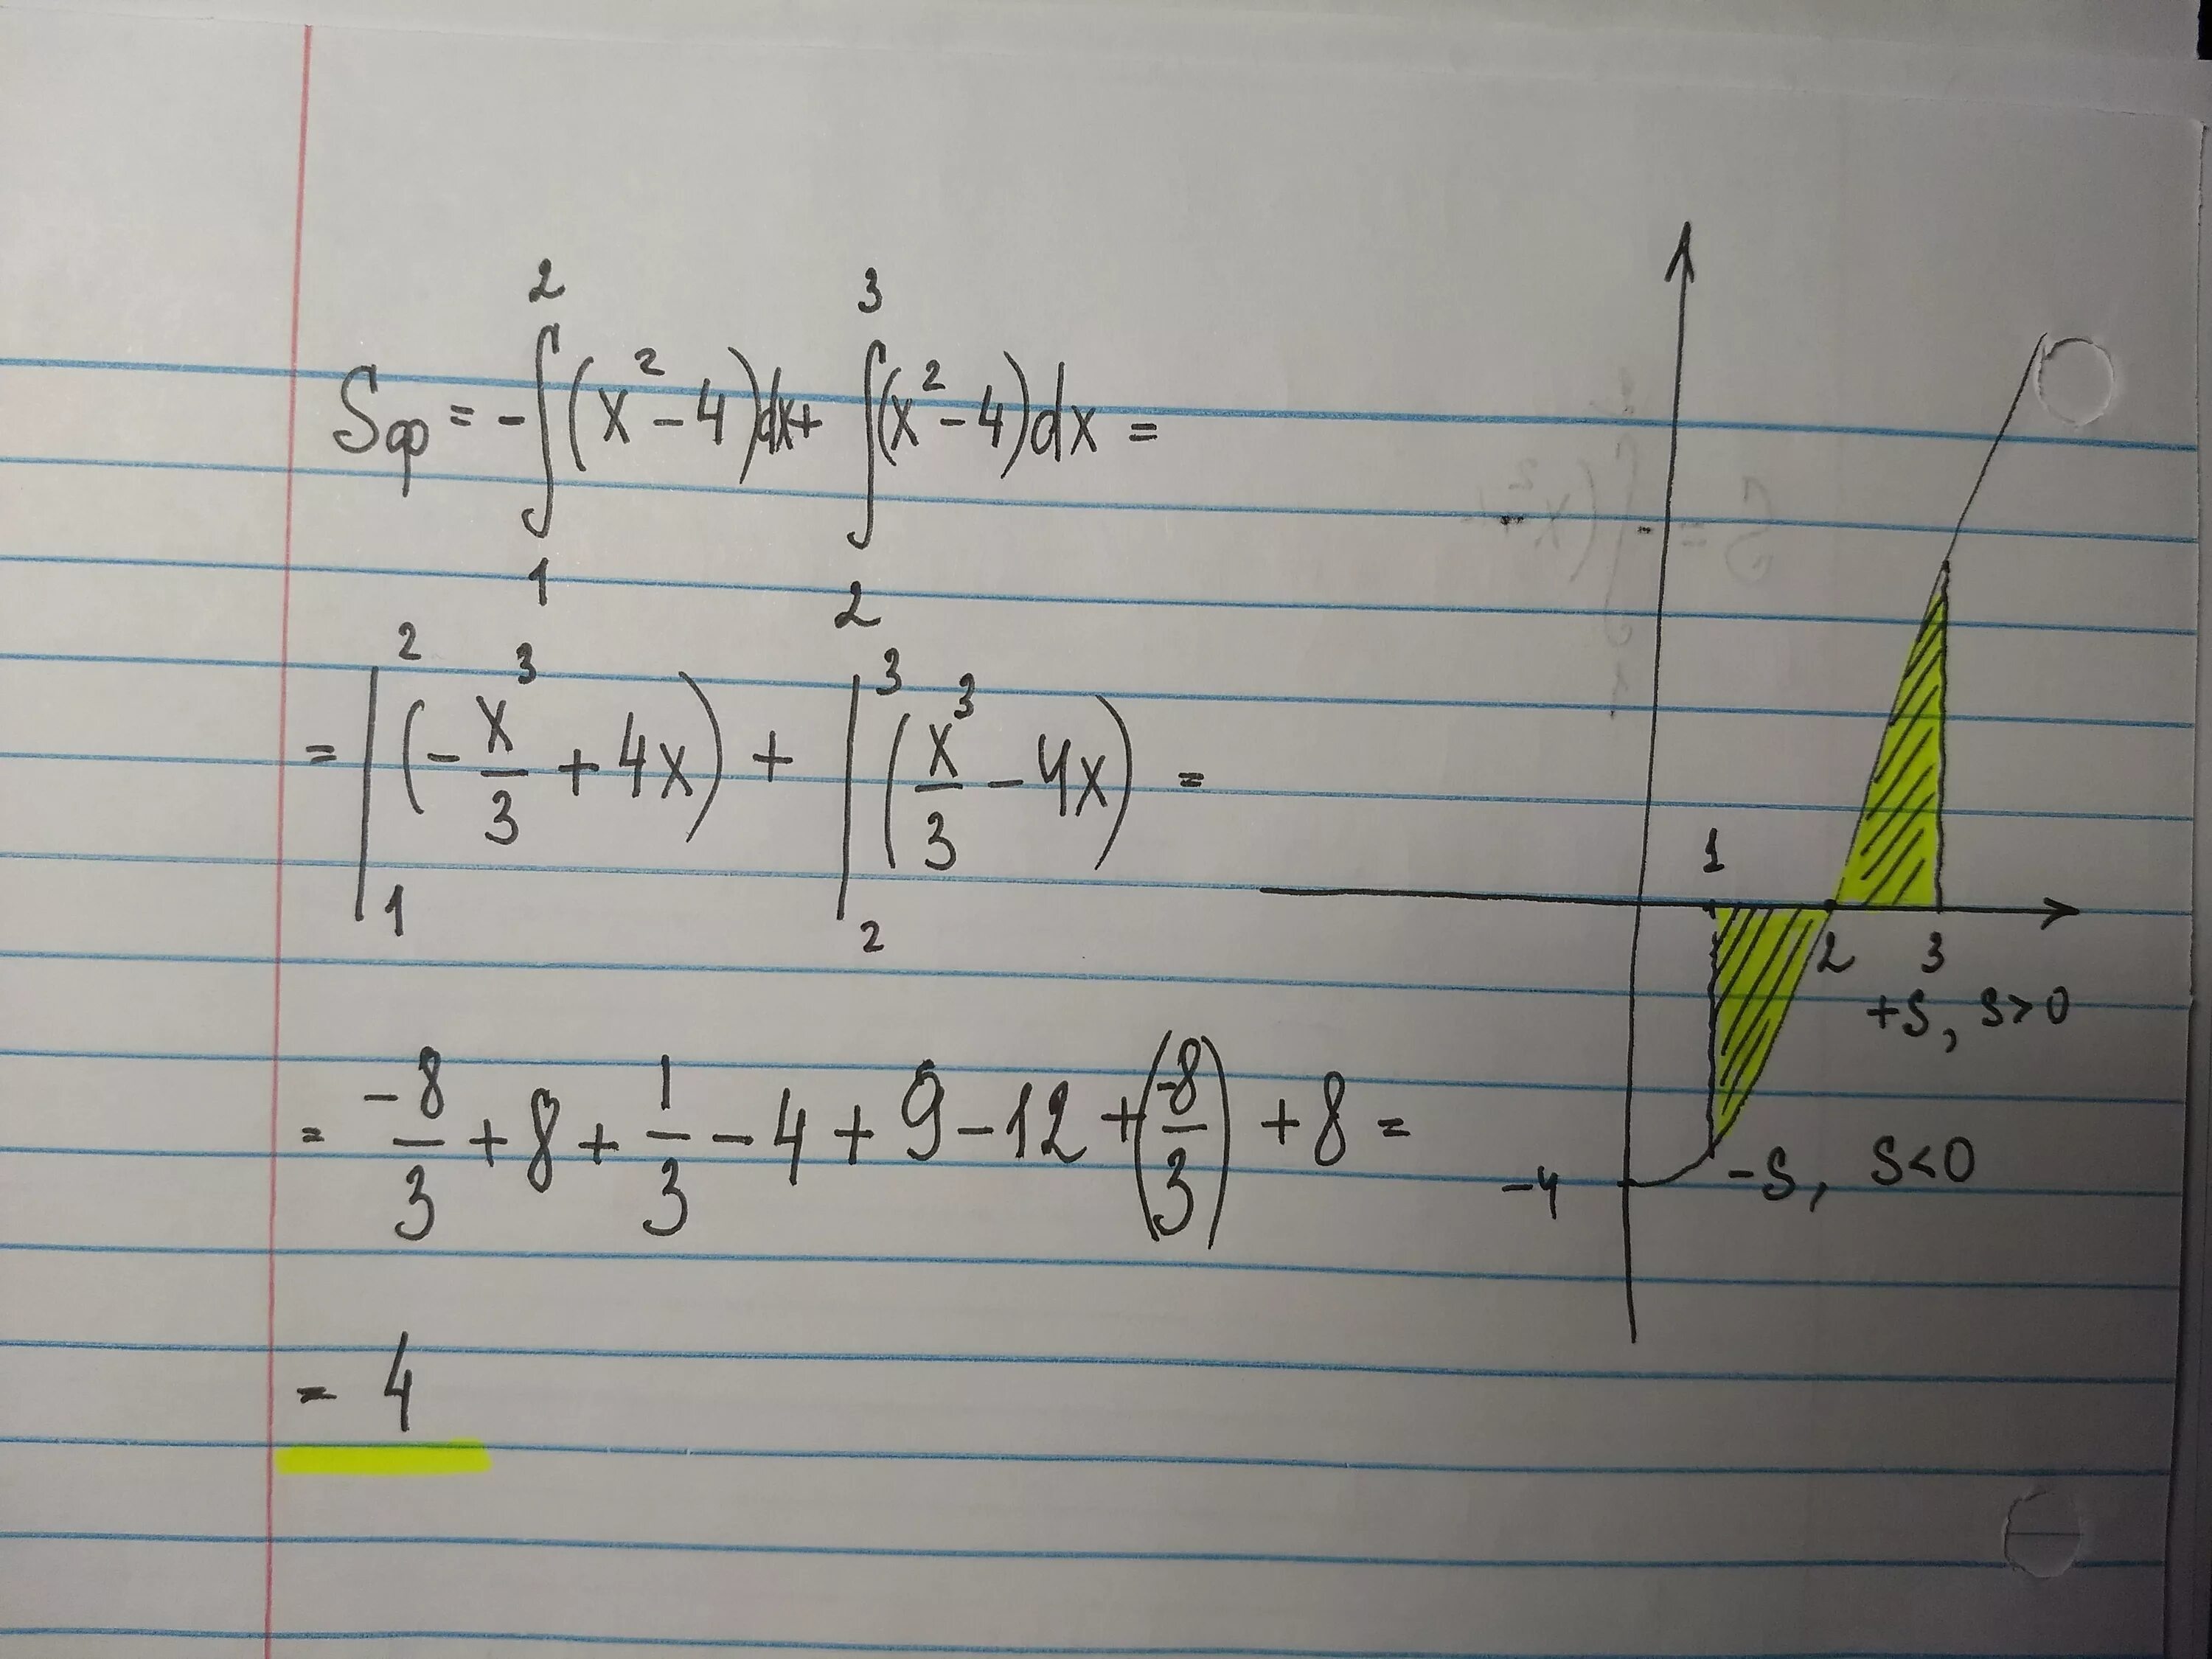 Sф = -∫₁²(x²-4)dx + ∫₂³(x²-4)dx =
= |₁² (-x³/3 + 4x) + |₂³ (x³/3 - 4x) =
= -8/3 + 8 + 1/3 - 4 + 9 - 12 + (-8/3) + 8 =
= 4
1
2 3
+S, S>0
-S, S<0
-4